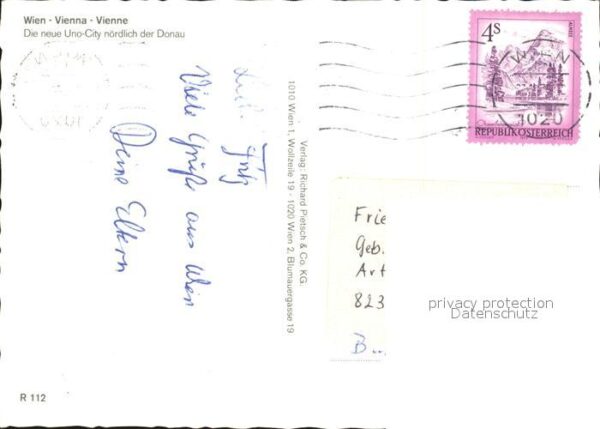 Wien · Vienna · Vienne
Die neue Uno-City nördlich der Donau
Fritz
Viele Grüße aus Wien
Deine Eltern
Verlag: Richard Pietsch & Co. KG.
1010 Wien 1, Wollzeile 19 - 1020 Wien 2, Blumauergasse 19
4S
ALMSEE
REPUBLIK ÖSTERREICH
WIEN
1020
Frie
Geb.
Art
823
B...
privacy protection
Datenschutz
R 112